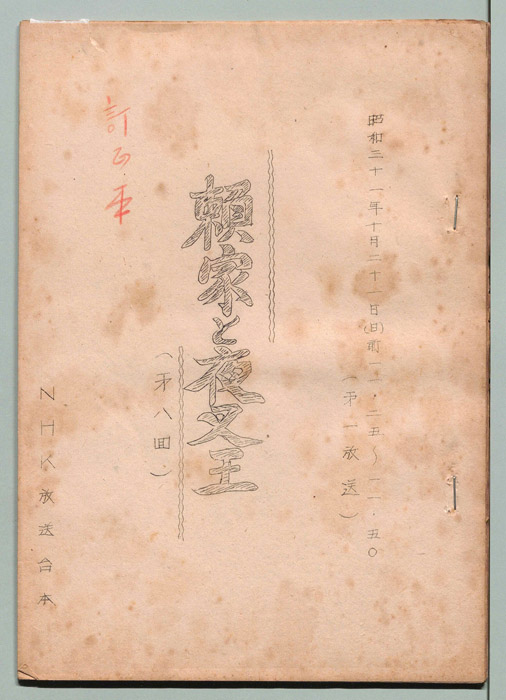 昭和三十一年十月二十一日(日)前一一・二五〜一一・五〇
(第一放送)
頼家と夜叉王
(第八回)
訂正本
NHK放送台本